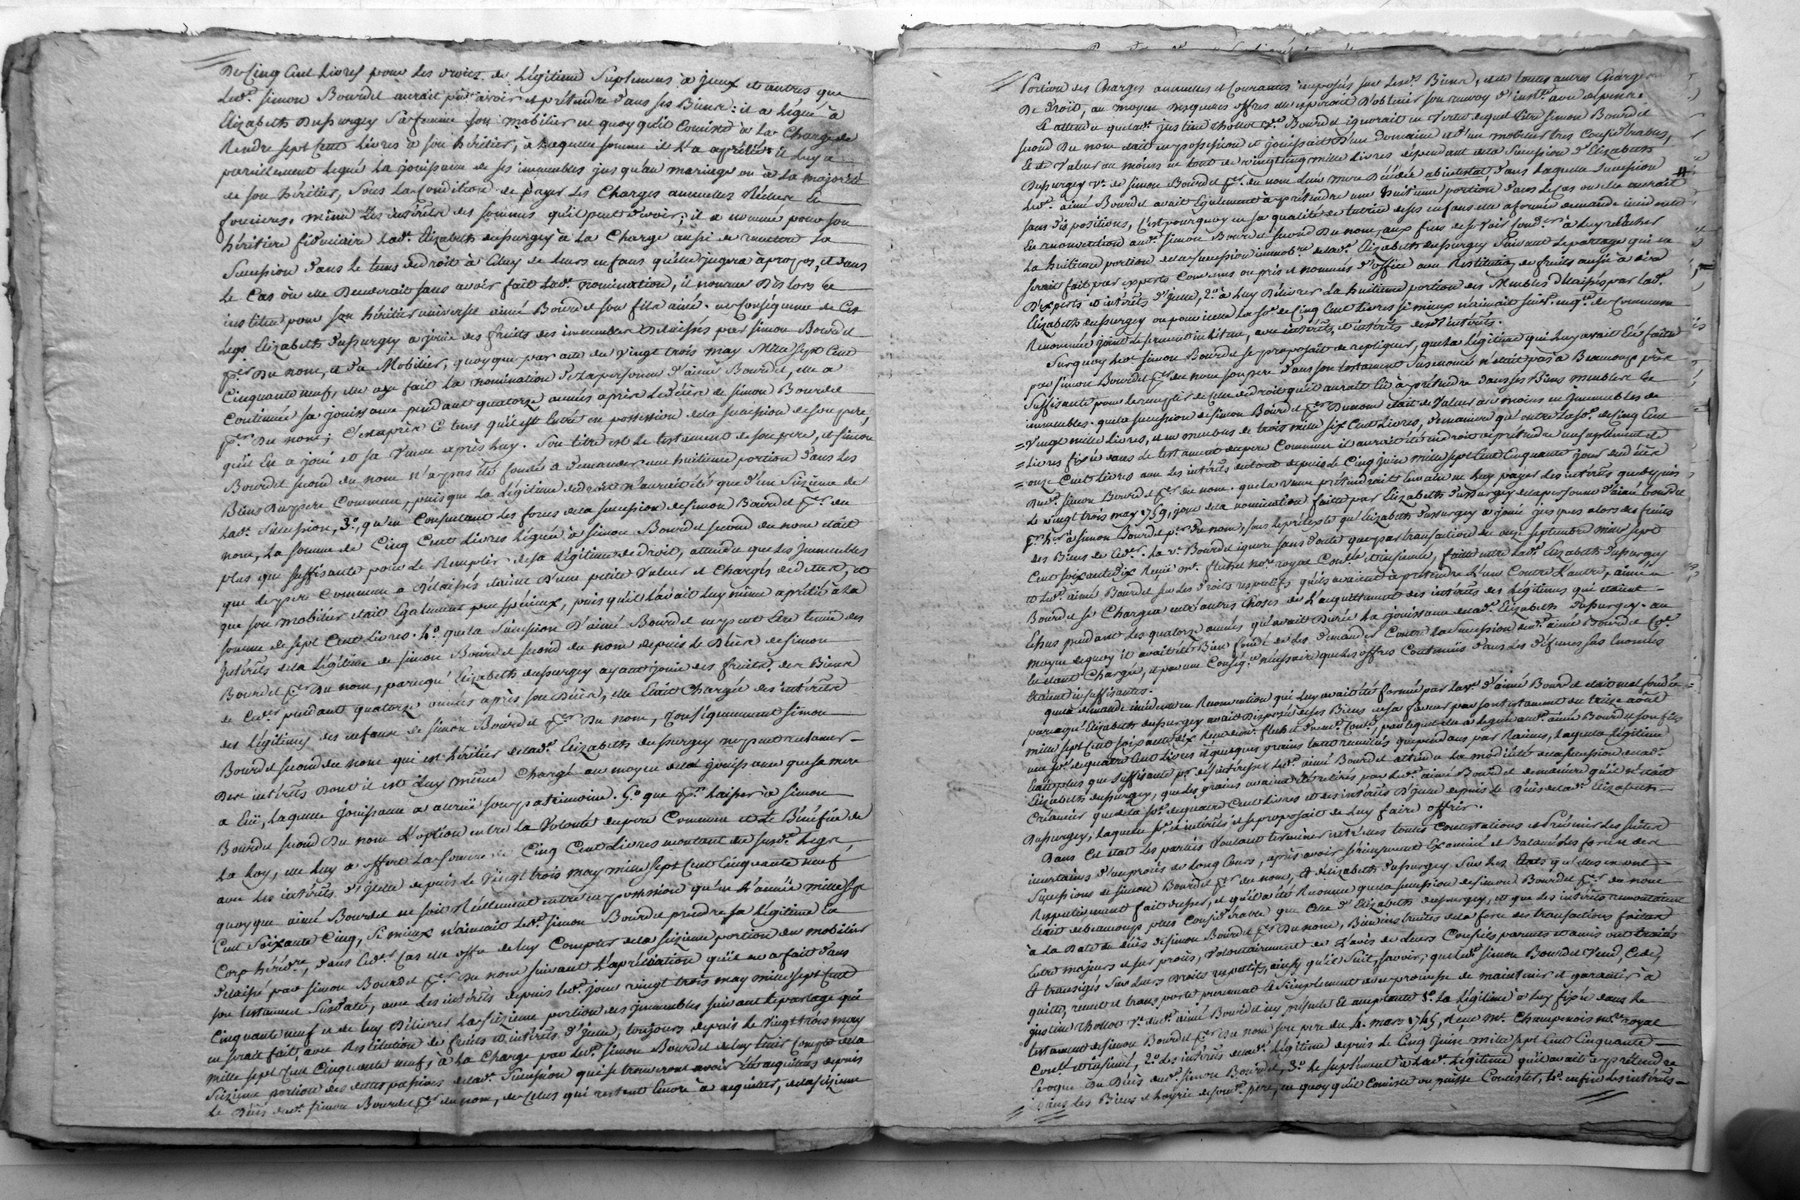 De Cinq Cent Livres pour les droits de Légitime Suplement à Iceux et autres que
led. simon Bourdel aurait peu avoir et prétendre dans ses Biens: il a Légué à
Elizabeth Dupurgey sa femme son mobilier en quoy qu'il Consiste à La Charge de
Rendre sept Cent Livres à son héritier, à Laquelle somme il L'a aprétié: il luy a
pareillement Légué la jouissance de ses immeubles jusqu'au mariage ou à La majorité
de son héritier, sous La Condition de payer Les Charges annuelles Réelles et
foncieres, même Les intérêts des sommes qu'il peut devoir: il a nommé pour son
héritiere fiduciaire lad. Elizabeth dupurgey à La Charge aussi de remettre La
Succession dans le tems de droit à Celuy de Leurs enfans qu'elle jugera à propos, et dans
Le Cas où elle Décéderait sans avoir fait lad. nomination, il nomme Dès lors et
institue pour son héritier universel aimé Bourdel son fils ainé. en Conséquence de Ces
Legs Elizabeth Dupurgey a jouie des fruits des immeubles Délaissés par simon Bourdel
p.er Du nom, et du Mobilier, quoyque par acte du vingt trois may Mil sept Cent
Cinquante neuf, elle aye fait La nomination de La personne d'aimé Bourdel, elle a
Continué sa jouissance pendant quatorze années après Le décès de simon Bourdel
p.er Du nom; C'est après Ce tems qu'il est Entré en possession de la succession de son pere,
qu'il En a joui et sa Veuve après Luy. Son titre est Le testament de son pere, et simon
Bourdel second du nom n'a pas été fondé à demander une huitieme portion dans Les
Biens du pere Commun, puisque La Légitime de droit n'aurait été que d'un Sizieme de
lad. Succession, 3.º qu'en Consultant Les forces de la succession de simon Bourdel p.er du
nom, La somme de Cinq Cent Livres Léguée à simon Bourdel second du nom était
plus que suffisante pour Le Remplir de sa Légitime de droit, attendu que Les Immeubles
que Le pere Commun a Délaissés étaient d'une petite Valeur et Chargés de dettes, et
que son mobilier était Egalement peu précieux, puis qu'il L'avait Luy même aprétié à La
somme de sept Cent Livres. 4.º que La Succession D'aimé Bourdel ne peut être tenue des
Intérêts de la Légitime de simon Bourdel second du nom depuis Le Décès de simon
Bourdel p.er Du nom, parceque Elizabeth dupurgey ayant jouie des fruits des Biens
de Celuy pendant quatorze années après son Décès, elle Etait Chargée des intérêts
des Légitimes des enfans de simon Bourdel p.er Du nom, conséquemment simon
Bourdel second du nom qui est héritier de lad. Elizabeth dupurgey ne peut réclamer
Des intérêts dont il est Luy même Chargé au moyen de la Jouissance que sa mere
a Eü, Laquelle Jouissance a accrüe son patrimoine. 5.º que p.r Laisser à simon
Bourdel second Du nom L'option entre La Volonté du pere Commun et Le Bénéfice de
La Loy, elle Luy a offert La somme de Cinq Cent Livres montant du susd. Legs,
avec les intérêts d'Icelle depuis Le Vingt trois may mille sept Cent Cinquante neuf
quoyque aimé Bourdel ne soit Réellement entré en possession qu'en L'année mille sept
Cent Soixante Cinq, si mieux n'aimait led. simon Bourdel prendre sa Légitime En
Corps hérédre, dans led. Cas elle offre de Luy Compter de la sizieme portion du mobilier
délaissé par simon Bourdel p.er Du nom suivant L'aprétiation qu'il en a fait dans
son testament susdaté, avec Les intérêts depuis led. Jour vingt trois may mille sept Cent
Cinquante neuf et de luy Délivrer La sizieme portion des immeubles suivant Le partage qui
en serait fait, avec Restitution de fruits et intérêts d'Iceux, toujours depuis Le Vingt trois may
mille sept Cent Cinquante neuf, à La Charge par led. simon Bourdel de luy tenir Compte de la
sizieme portion des dettes passives de lad. Succession qui se trouveront avoir été acquitées depuis
Le Décès dud. simon Bourdel p.er du nom, de Celles qui restent Encore à acquiter, de la sizieme
Portion des Charges annuelles et Courantes imposées sur lesd. Biens, et de toutes autres Charges
De Droit, au moyen desquelles offres elle espérait D'obtenir son renvoy d'inst.ce avec dépens.
Et attendu que lad. justine thollot V.e Bourdel ignorait en Vertu de quel titre simon Bourdel
second Du nom était en possession et jouissait d'un domaine et d'un mobilier très Considérables,
et de Valeur au moins en tout de vingt cinq mille Livres dépendant de la succession d'Elizabeth
Dupurgey V.e de simon Bourdel p.er du nom Leur mere Décédée abintestat dans Laquelle succession
led. aimé Bourdel avait Egalement à prétendre une huitieme portion dans Le Cas où elle aurait
sans dispositions, C'est pourquoy en sa qualité de tutrice de ses enfans elle a formé demande incidente
En reconvention aud. simon Bourdel second Du nom, aux fins de se voir Cond.er à Luy relâcher
La huitieme portion de la succession immob.re de lad. Elizabeth dupurgey suivant Le partage qui en
serait fait par experts Convenus ou pris et nommés d'office avec Restitution de fruits aussi à dire
D'experts et intérêts d'Iceux, 2.º à luy Délivrer La huitieme portion des Meubles délaissés par lad.
Elizabeth dupurgey ou pour icelle La so.e de Cinq Cent Livres si mieux n'aimait suiv.t enq.te de Commune
Renommée jointe le serment in Litem, avec intérêts, et intérêts des d. intérêts.
Surquoy led. simon Bourdel se proposait de répliquer, que La Légitime qui luy avait Eté faite
par simon Bourdel p.er du nom son pere dans son testament susénoncé n'était pas à Beaucoup près
suffisante pour Le remplir de celle de droit qu'il aurait Eté à prétendre dans ses Biens meubles et
immeubles. que la succession de simon Bourdel p.er Du nom était de Valeur au moins en Immeubles de
= Vingt mille Livres, et en meubles de trois mille six Cent Livres, de maniere qu'outre La so.e de cinq Cent
= Livres fixée dans le testament du pere Commun il aurait été en droit de prétendre un suplement de
= onze Cent Livres avec Les intérêts du tout depuis Le Cinq juin mille sept Cent Cinquante jour du décès
Dud. simon Bourdel p.er du nom. que la Veuve prétendrait Envain ne luy payer des intérêts que depuis
Le vingt trois may 1759, jour de la nomination faite par Elizabeth dupurgey de la personne d'aimé bourdel
p.r h.er à simon Bourdel p.er du nom, sous Le prétexte qu'Elizabeth Dupurgey a jouie jusques alors des fruits
des Biens de Celuy. La V.e Bourdel ignore sans doute que par transaction du onze septembre mille sept
Cent soixante dix reçue m.e Flichet no.re royal Con.er et trésorier, faite entre lad. Elizabeth Dupurgey
et led. aimé Bourdel sur Les droits respectifs qu'ils avaient à prétendre L'un Contre L'autre, aimé
Bourdel se Chargea entre autres Choses de L'acquittement des intérêts des Légitimes qui étaient
Echus pendant Les quatorze années qu'avait Durée La jouissance de lad. Elizabeth Dupurgey. au
moyen de quoy il avait été Bien fondé à Les demander Contre La succession dud. aimé Bourdel Celuy
en étant Chargé, et par une Conséq.ce nécessaire que les offres Contenues dans Les défenses sus Enoncées
étaient insuffisantes.
que la demande incidente en Reconvention qui luy avait été formée par la V.e d'aimé Bourdel était mal fondée
parceque Elizabeth dupurgey avait Disposé de ses Biens en sa faveur par son testament du treize août
mille sept Cent soixante dix Reçu dev.t Flichet dénom.é Cont.ly par lequel elle a Légué aud. aimé Bourdel son fils
une so.e de quatre Cent Livres et quelques grains tant recueillis que pendans par Racines, Laquelle Légitime
était plus que suffisante p.r désintéresser led. aimé Bourdel attendu La modicité de la succession de lad.
Elizabeth dupurgey, que Les grains avaient été retirés par led. aimé Bourdel de maniere qu'il n'était
Créancier que de la so.e de quatre Cent Livres et des intérêts d'Icelle depuis Le Décès de lad. Elizabeth
Dupurgey, Laquelle so.e et intérêts il se proposait de luy faire offrir.
Dans Cet état Les parties Voulant terminer entre elles toutes Contestations et Prévenir Les suites
incertaines d'un procès de Long Cours, après avoir sérieusement Examiné et Balancé Les forces des
successions de simon Bourdel p.er du nom, et d'Elizabeth dupurgey sur Les Etats qui Leurs en ont
Respectivement fait dresser, et qu'il a été Reconnu que la succession de simon Bourdel p.er du nom
était de beaucoup plus Considérable que Celle d'Elizabeth dupurgey, et que Les intérêts remontaient
à la Date du décès de simon Bourdel p.er Du nom, Bien instruites de la force des transactions faites
Entre majeurs et sur procès, Volontairement de L'avis de Leurs Conseils parents et amis ont traités
et transigés sur Leurs droits respectifs, ainsy qu'il suit, sçavoir; que led. simon Bourdel Vend, Cede,
quitte, remet et transporte purement et simplement avec promesse de maintenir et garantir à
justine thollot V.e dud. aimé Bourdel icy présente et acceptante 1.º La Légitime à luy fixée dans Le
testament de simon Bourdel p.er Du nom son pere du 4. mars 1745, Reçu M.e Champenois no.re royal
Con.er et trésorier, 2.º des intérêts de lad. Légitime depuis Le Cinq Juin Mille sept Cent Cinquante
Epoque du Décès dud. simon Bourdel, 3.º Le suplément à lad. Légitime qu'il avait à prétendre
dans Les Biens et hoyrie de son d. pere, en quoy qu'il Consiste ou puisse Consister, 4.º enfin des intérêts